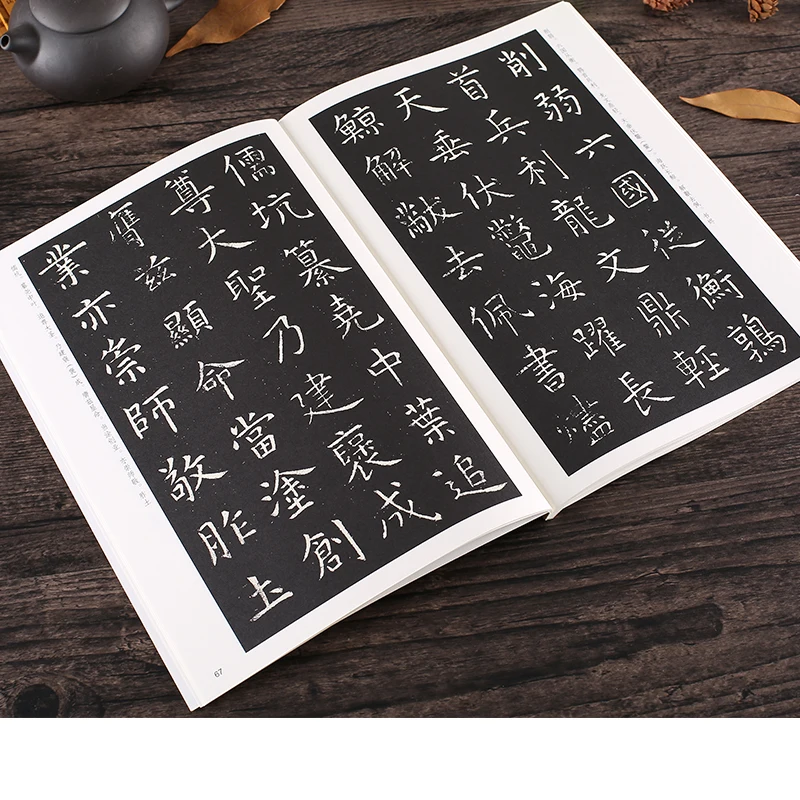 削弱六國從衡鶉
首兵利龍文鼎輕
天垂伏鼈海躍長
鯨解黻去佩書燼
儒坑纂堯中葉追
尊大聖乃建褒成
膺茲顯命當塗創
業亦崇師敬胙土
67